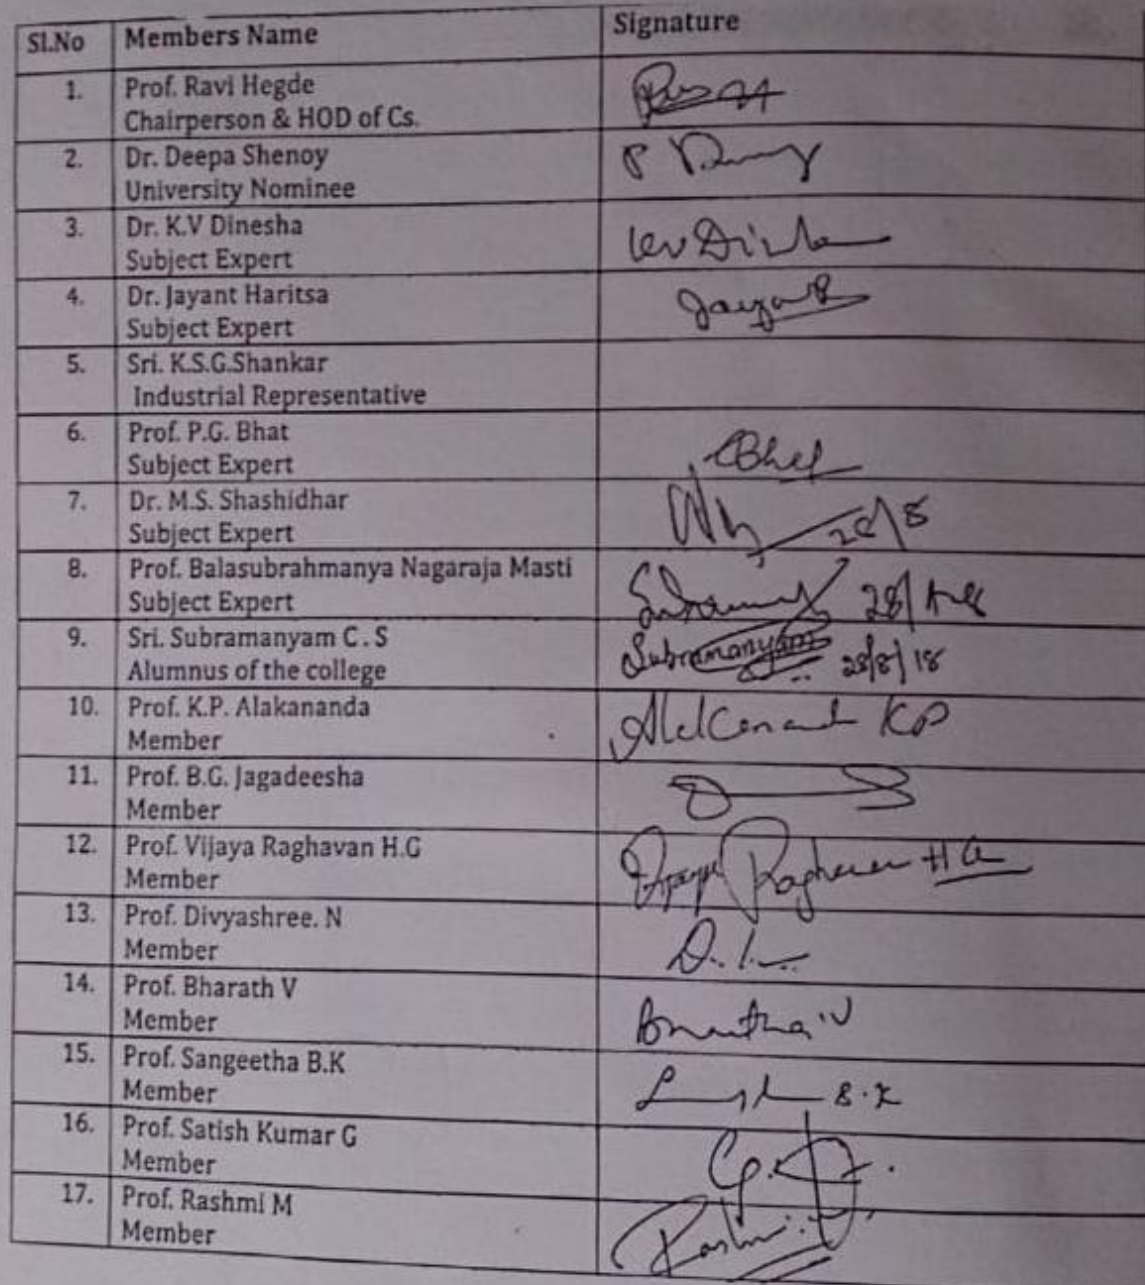 Sl.No Members Name Signature
1. Prof. Ravi Hegde
Chairperson & HOD of Cs.
2. Dr. Deepa Shenoy
University Nominee
3. Dr. K.V Dinesha
Subject Expert
4. Dr. Jayant Haritsa
Subject Expert
5. Sri. K.S.G.Shankar
Industrial Representative
6. Prof. P.G. Bhat
Subject Expert
7. Dr. M.S. Shashidhar
Subject Expert
8. Prof. Balasubrahmanya Nagaraja Masti
Subject Expert
9. Sri. Subramanyam C . S Subramanyam 28/8/18
Alumnus of the college
10. Prof. K.P. Alakananda KP
Member
11. Prof. B.G. Jagadeesha
Member
12. Prof. Vijaya Raghavan H.G
Member
13. Prof. Divyashree. N
Member
14. Prof. Bharath V
Member
15. Prof. Sangeetha B.K B.K
Member
16. Prof. Satish Kumar G
Member
17. Prof. Rashmi M
Member